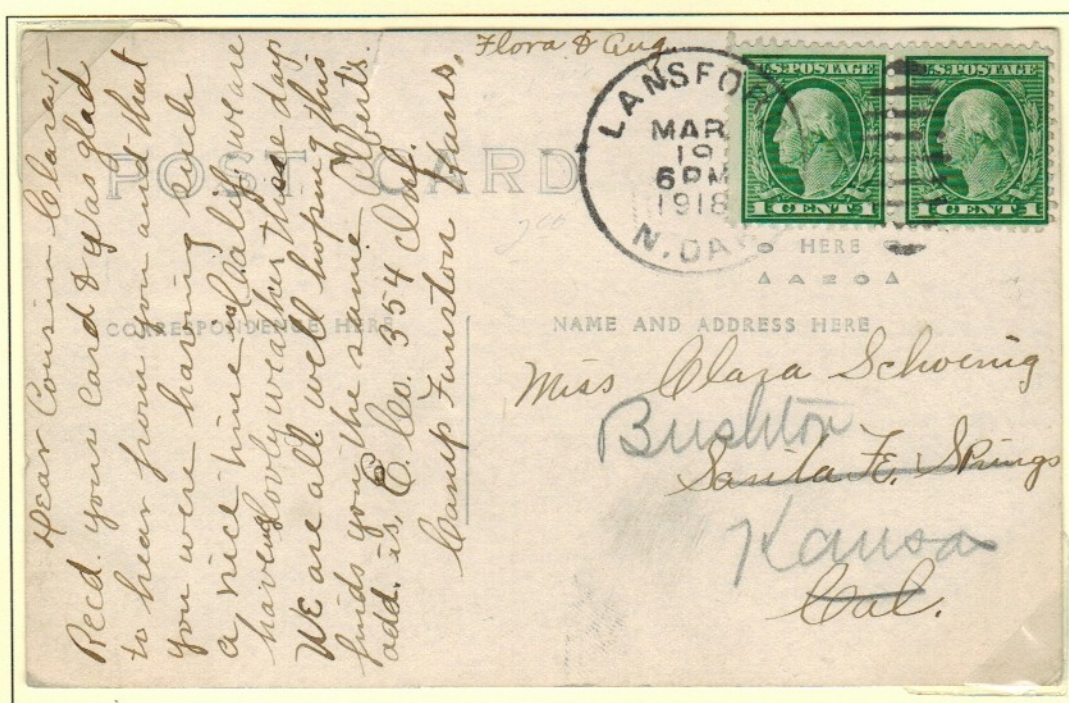 Flora & Aug.
Dear Cousin Clara:-
Recd. your card & was glad
to hear from you and that
you were having such
a nice time in Calif. we are
having lovely weather these days
We are all well hoping this
finds you the same. Albert's
add. is, E. Co. 354 Inf.
Camp Funston Kans.
POST CARD
CORRESPONDENCE HERE
NAME AND ADDRESS HERE
LANSFOR
MAR
19
6 PM
1918
N. DAK
U.S. POSTAGE
1 CENT 1
U.S. POSTAGE
1 CENT 1
HERE
Miss Clara Schoenig
Bushton
Santa Fe, Springs
Kansas
Cal.